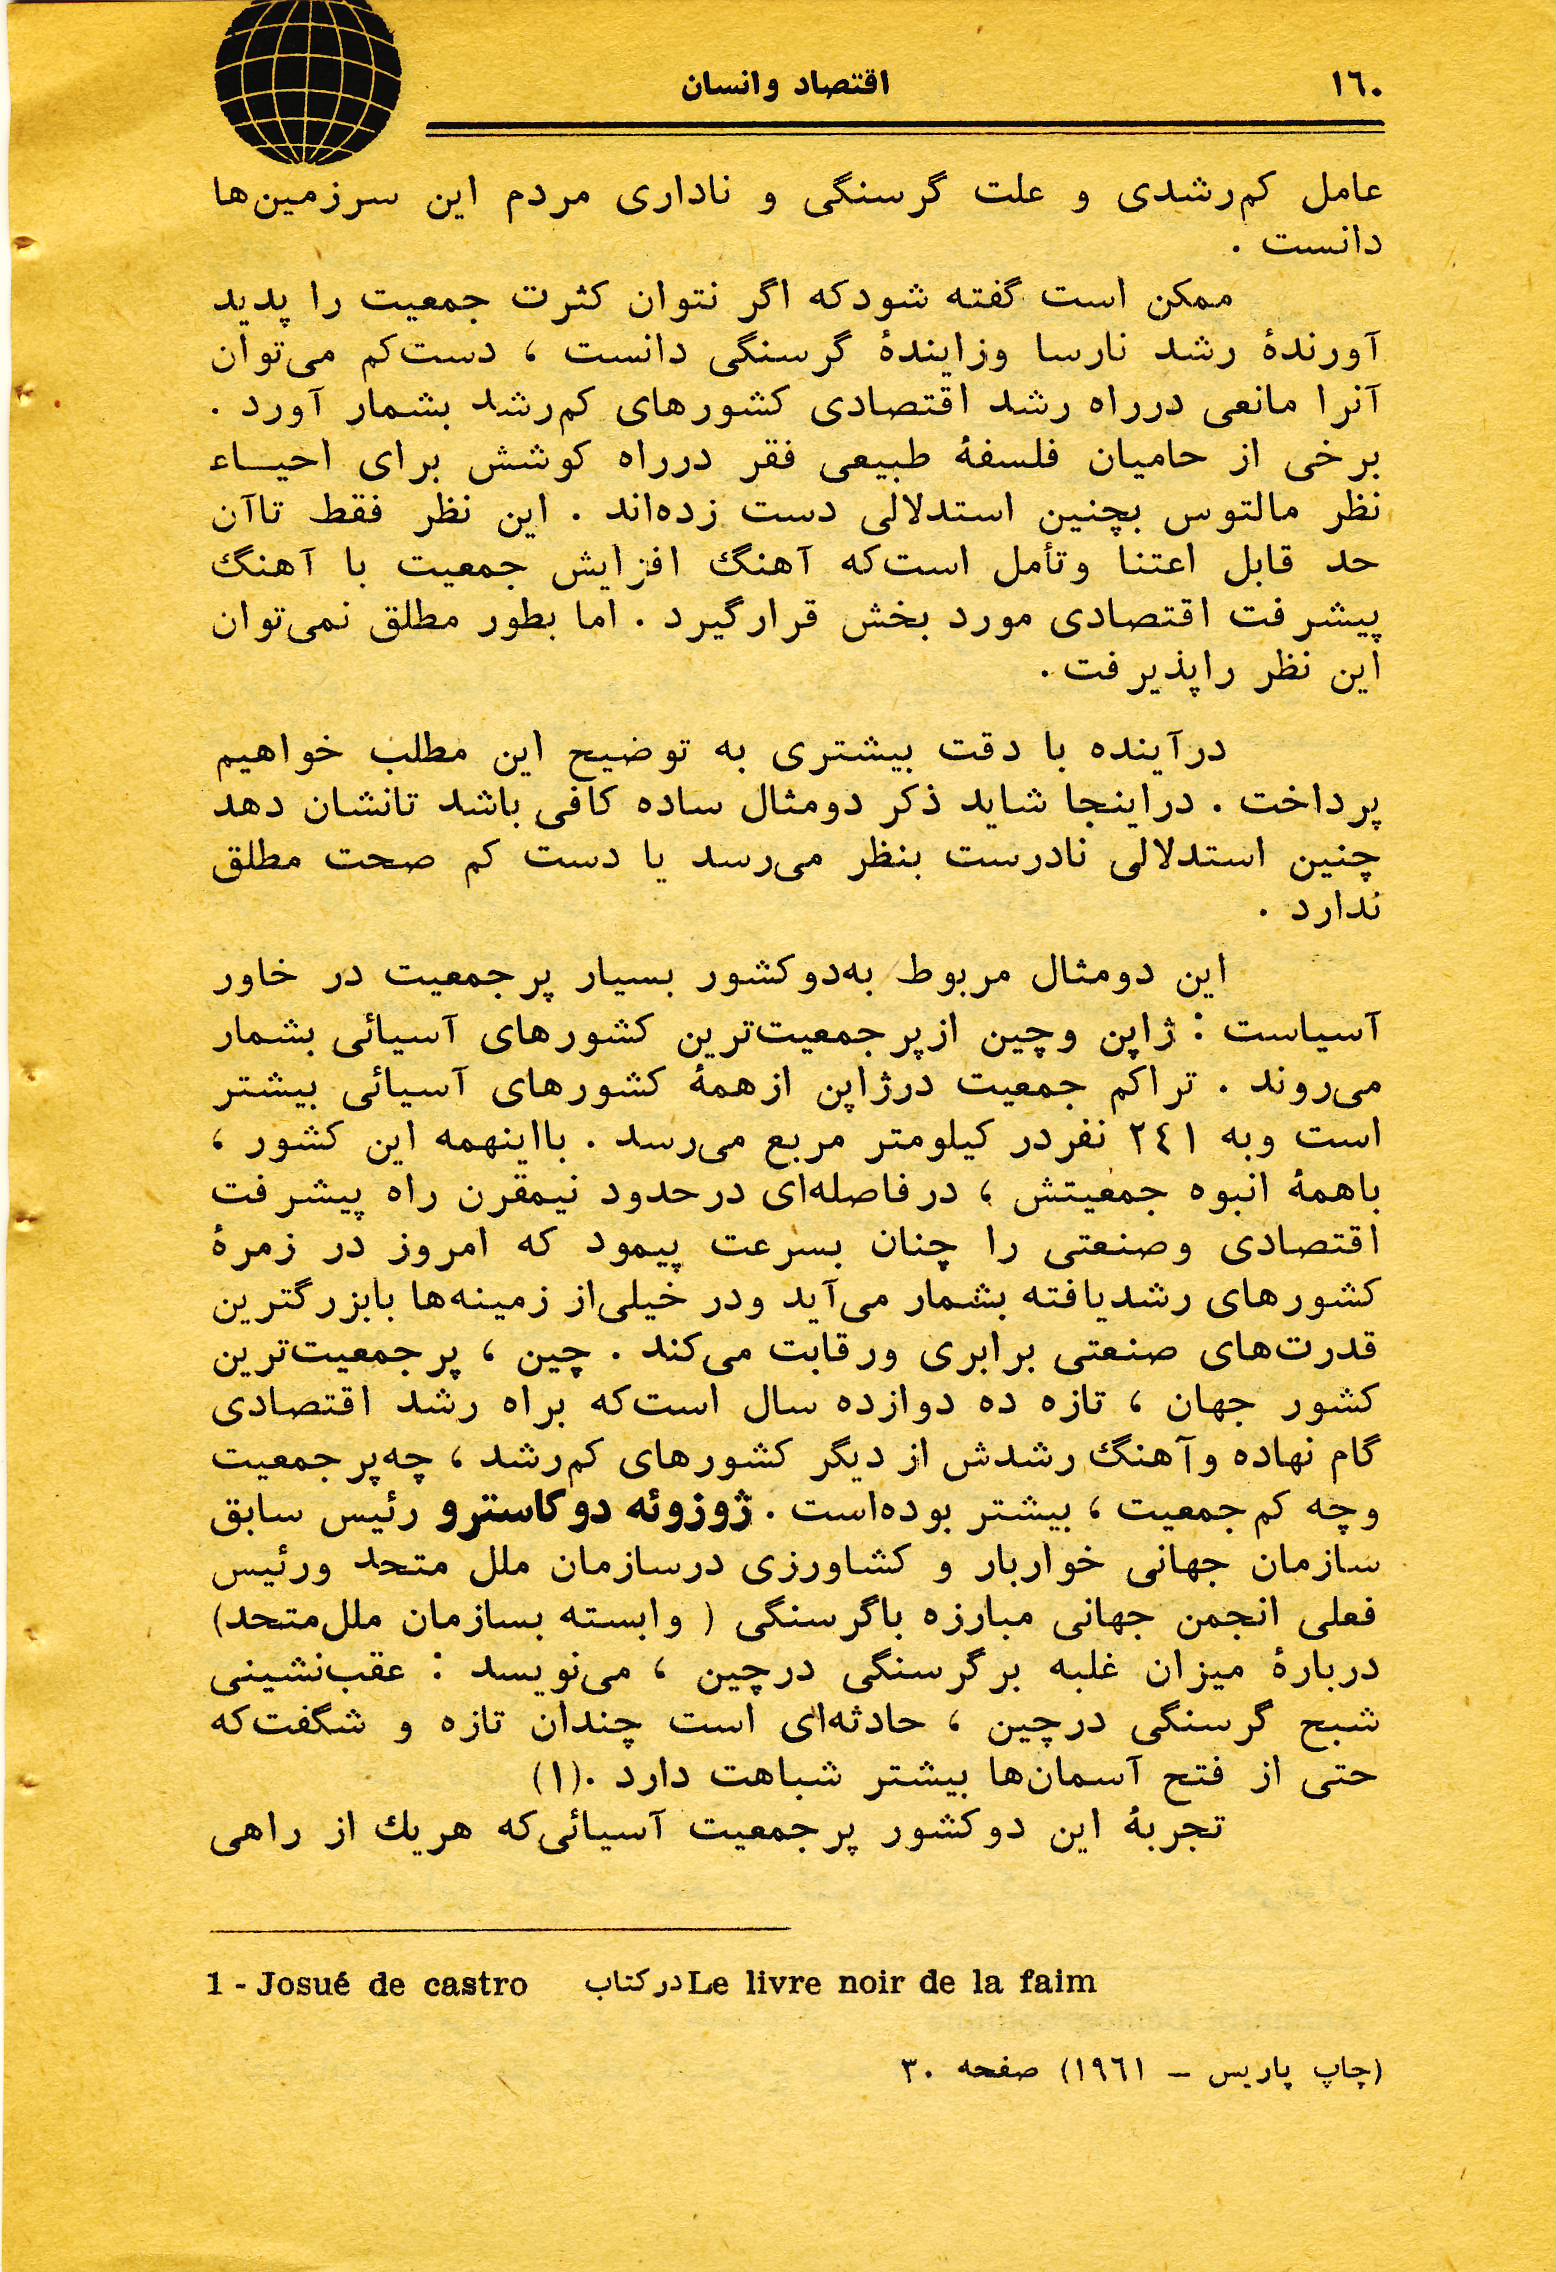 ١٦٠
اقتصاد وانسان
عامل کم‌رشدی و علت گرسنگی و ناداری مردم این سرزمین‌ها
دانست .
ممکن است گفته شودکه اگر نتوان کثرت جمعیت را پدید
آورندهٔ رشد نارسا وزایندهٔ گرسنگی دانست ، دست‌کم می‌توان
آنرا مانعی درراه رشد اقتصادی کشورهای کم‌رشد بشمار آورد .
برخی از حامیان فلسفهٔ طبیعی فقر درراه کوشش برای احیـاء
نظر مالتوس بچنین استدلالی دست زده‌اند . این نظر فقط تاآن
حد قابل اعتنا وتأمل است‌که آهنگ افزایش جمعیت با آهنگ
پیشرفت اقتصادی مورد بخش قرارگیرد . اما بطور مطلق نمی‌توان
این نظر راپذیرفت .
درآینده با دقت بیشتری به توضیح این مطلب خواهیم
پرداخت . دراینجا شاید ذکر دومثال ساده کافی باشد تانشان دهد
چنین استدلالی نادرست بنظر می‌رسد یا دست کم صحت مطلق
ندارد .
این دومثال مربوط به‌دوکشور بسیار پرجمعیت در خاور
آسیاست : ژاپن وچین ازپرجمعیت‌ترین کشورهای آسیائی بشمار
می‌روند . تراکم جمعیت درژاپن ازهمهٔ کشورهای آسیائی بیشتر
است وبه ٢٤١ نفردر کیلومتر مربع می‌رسد . بااینهمه این کشور ،
باهمهٔ انبوه جمعیتش ، درفاصله‌ای درحدود نیمقرن راه پیشرفت
اقتصادی وصنعتی را چنان بسرعت پیمود که امروز در زمرهٔ
کشورهای رشدیافته بشمار می‌آید ودر خیلی‌از زمینه‌ها بابزرگترین
قدرت‌های صنعتی برابری ورقابت می‌کند . چین ، پرجمعیت‌ترین
کشور جهان ، تازه ده دوازده سال است‌که براه رشد اقتصادی
گام نهاده وآهنگ رشدش از دیگر کشورهای کم‌رشد ، چه‌پرجمعیت
وچه کم‌جمعیت ، بیشتر بوده‌است . ژوزوئه دوکاسترو رئیس سابق
سازمان جهانی خواربار و کشاورزی درسازمان ملل متحد ورئیس
فعلی انجمن جهانی مبارزه باگرسنگی ( وابسته بسازمان ملل‌متحد)
دربارهٔ میزان غلبه برگرسنگی درچین ، می‌نویسد : عقب‌نشینی
شبح گرسنگی درچین ، حادثه‌ای است چندان تازه و شگفت‌که
حتی از فتح آسمان‌ها بیشتر شباهت دارد .(١)
تجربهٔ این دوکشور پرجمعیت آسیائی‌که هریك از راهی
1 - Josué de castro درکتاب Le livre noir de la faim
(چاپ پاریس – ١٩٦١) صفحه ٣٠